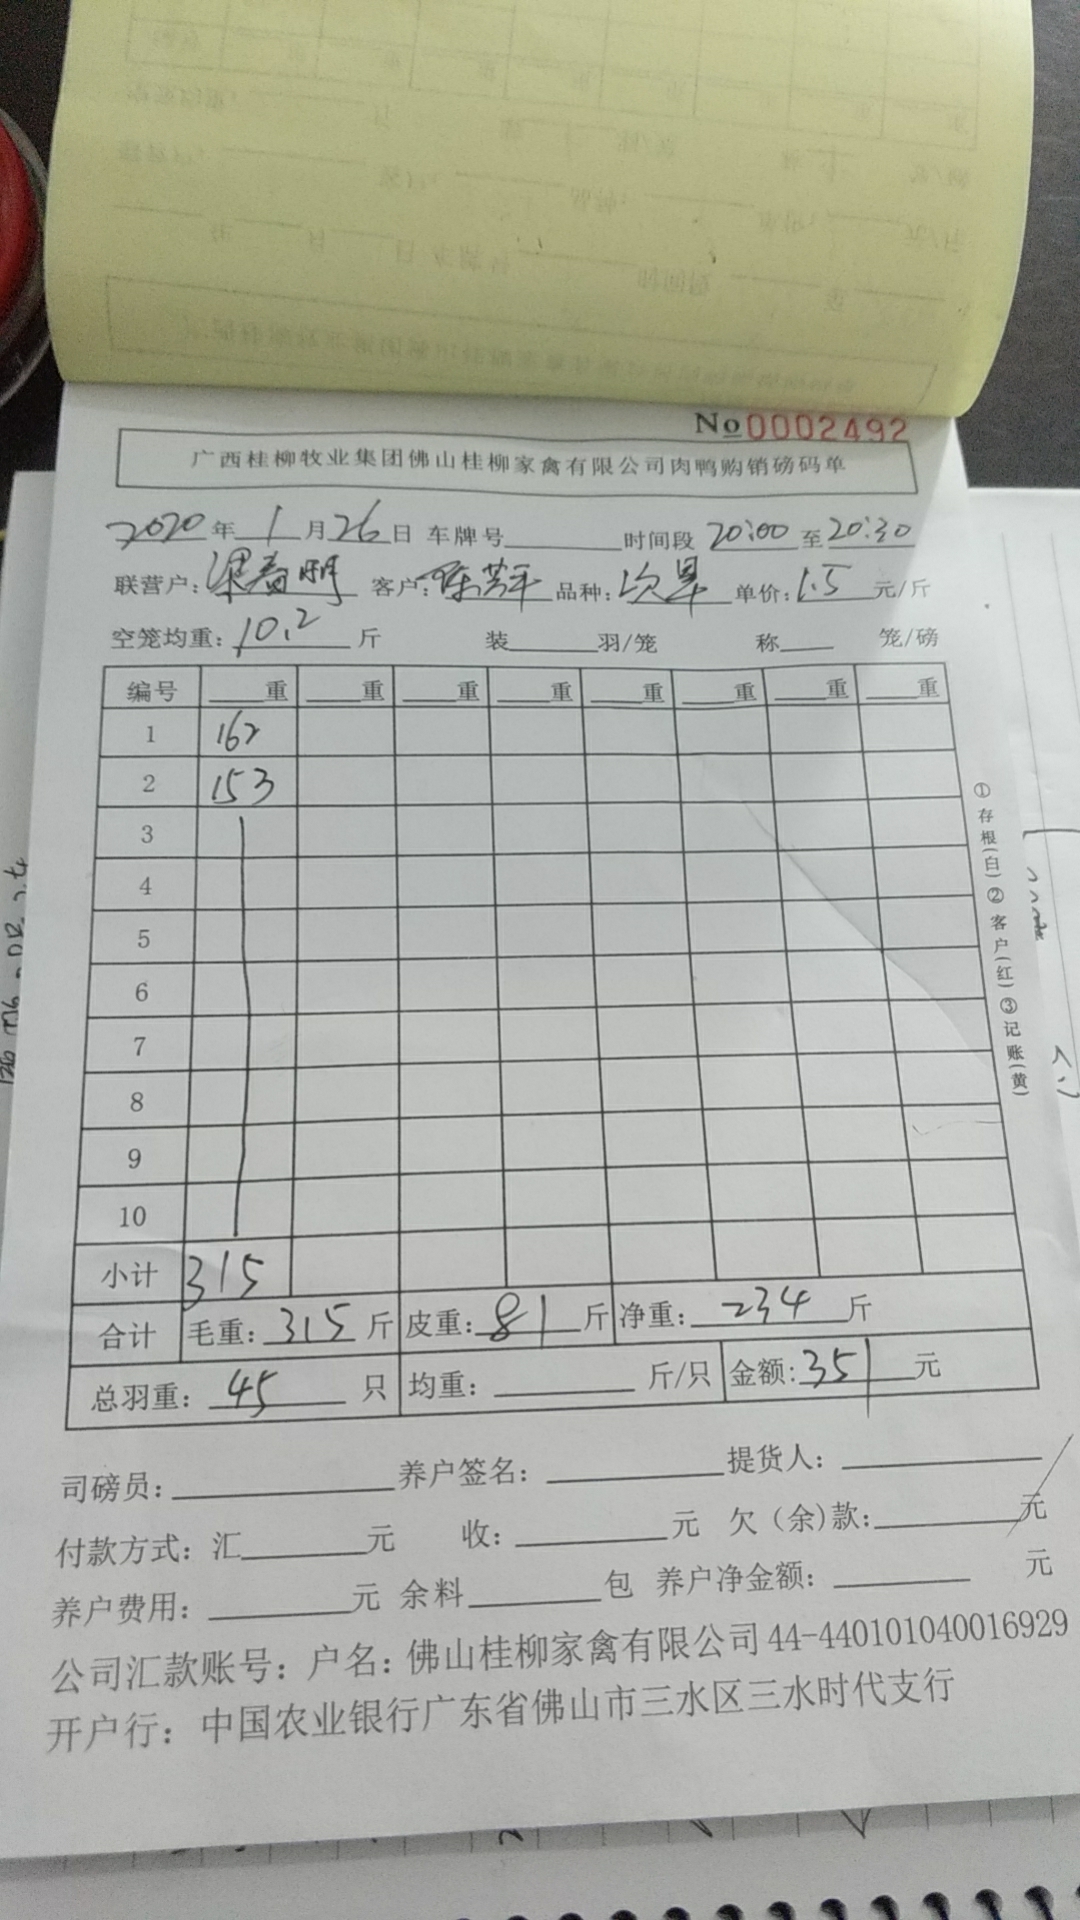 No 0002492
广西桂柳牧业集团佛山桂柳家禽有限公司肉鸭购销磅码单
2020年1月26日 车牌号 时间段 20:00 至 20:30
联营户: 梁春明 客户: 陈芳平 品种: 次旱 单价: 1.5 元/斤
空笼均重: 10.2 斤 装 羽/笼 称 笼/磅
编号 重 重 重 重 重 重 重 重
1 162
2 153
3
4
5
6
7
8
9
10
小计 315
合计 毛重: 315 斤 皮重: 81 斤 净重: 234 斤
总羽重: 45 只 均重: 斤/只 金额: 351 元
司磅员: 养户签名: 提货人:
付款方式: 汇 元 收: 元 欠(余)款: 元
养户费用: 元 余料 包 养户净金额: 元
公司汇款账号: 户名: 佛山桂柳家禽有限公司 44-440101040016929
开户行: 中国农业银行广东省佛山市三水区三水时代支行
①存根(白)②客户(红)③记账(黄)